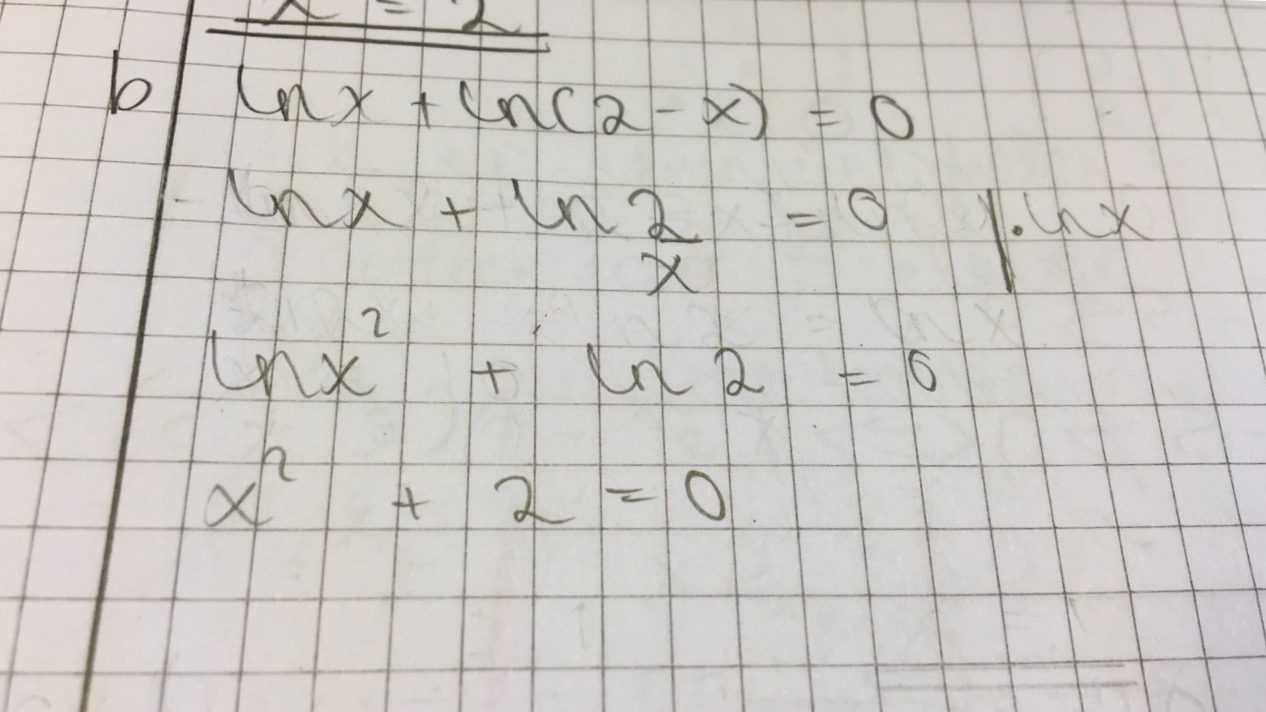 x = 2
b ln x + ln(2 - x) = 0
ln x + ln 2/x = 0 | · ln x
ln x² + ln 2 = 0
x² + 2 = 0